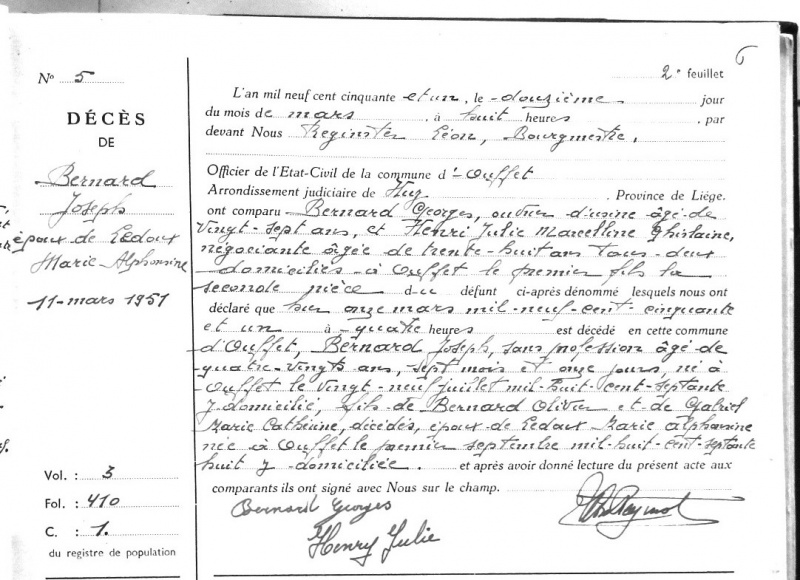 N° 5
DÉCÈS
DE
Bernard
Joseph
époux de Ledoux
Marie Alphonsine
11-mars 1951
Vol. : 3
Fol. : 410
C. : 1.
du registre de population
6
2e feuillet
L'an mil neuf cent cinquante et un, le douzième jour
du mois de mars, à huit heures, par
devant Nous Reginster Léon, Bourgmestre,
Officier de l'Etat-Civil de la commune d'Ouffet
Arrondissement judiciaire de Huy, Province de Liége,
ont comparu Bernard Georges, ouvrier d'usine âgé de
vingt-sept ans, et Henri Julie Marcelline Ghislaine,
négociante âgée de trente-huit ans tous deux
domiciliés à Ouffet le premier fils la
seconde nièce du défunt ci-après dénommé lesquels nous ont
déclaré que hier onze mars mil-neuf-cent-cinquante
et un à quatre heures est décédé en cette commune
d'Ouffet, Bernard Joseph, sans profession âgé de
quatre-vingts ans, sept mois et onze jours, né à
Ouffet le vingt-neuf juillet mil-huit-cent-septante
y domicilié, fils de Bernard Olivier et de Gabriel
Marie Catherine, décédés, époux de Ledoux Marie Alphonsine
née à Ouffet le premier septembre mil-huit-cent-septante
huit y domiciliée. et après avoir donné lecture du présent acte aux
comparants ils ont signé avec Nous sur le champ.
Bernard Georges
Henry Julie